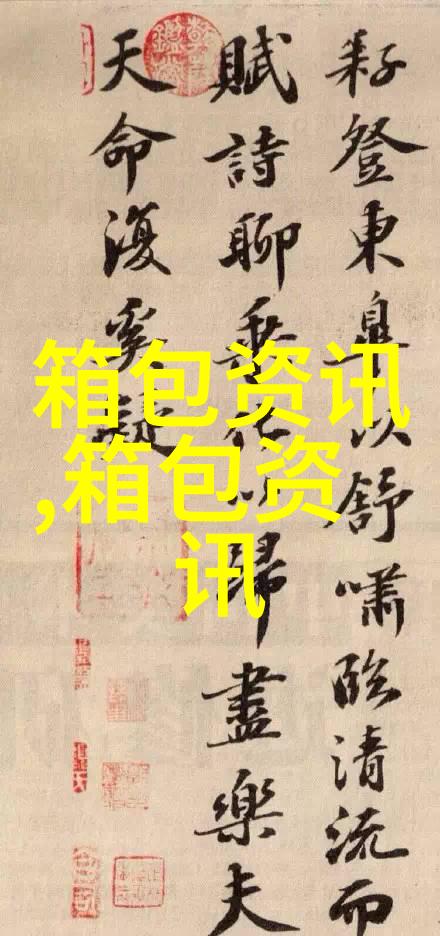 耔登東臯以舒嘯臨清流而
賦詩聊乘化以歸盡樂夫
天命復奚疑
箱包资讯
,箱包资
讯